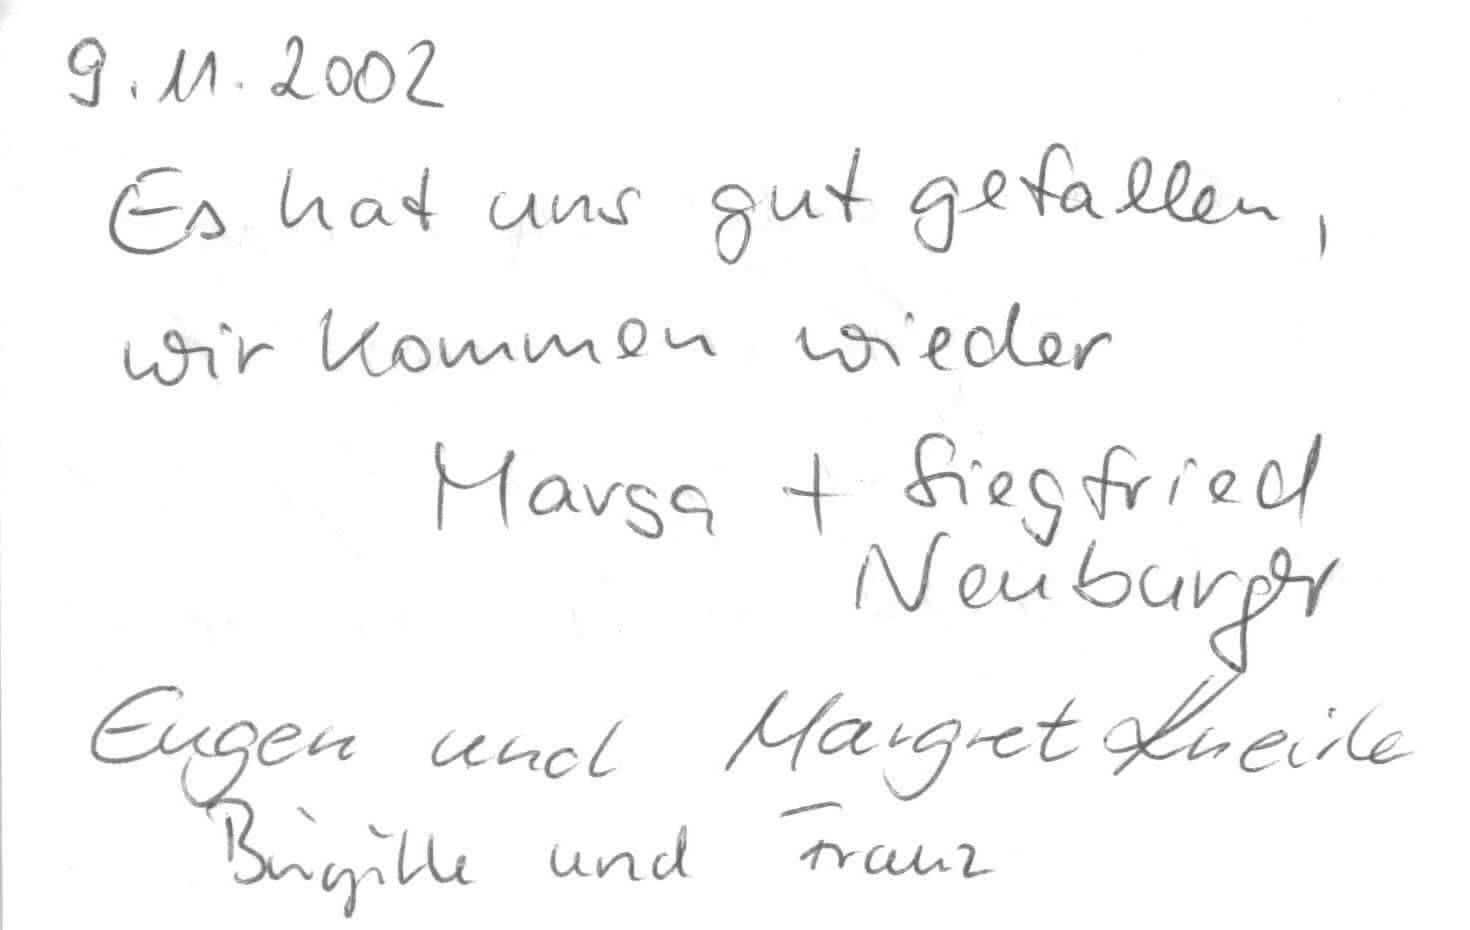 9.11.2002
Es hat uns gut gefallen,
wir kommen wieder
Marga + Siegfried
Neuburger
Eugen und Margret
Birgitte und Franz